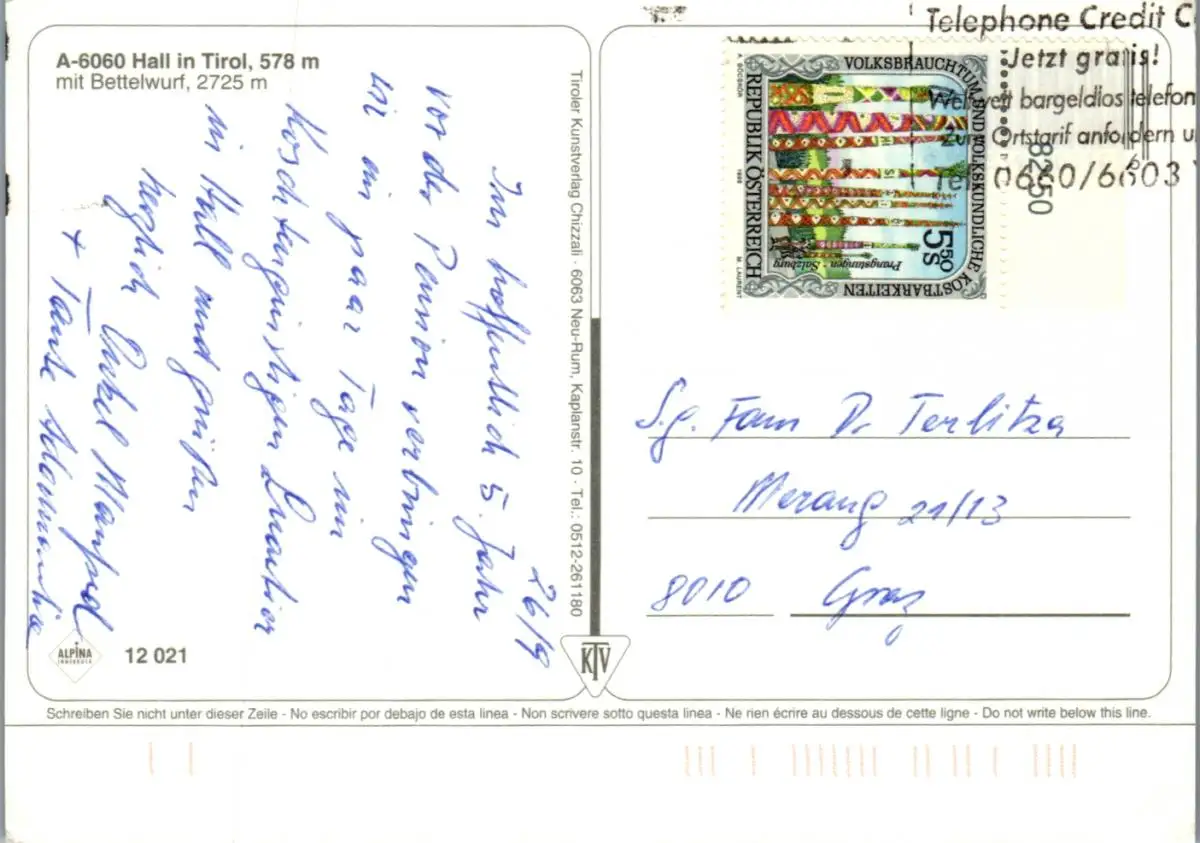 A-6060 Hall in Tirol, 578 m
mit Bettelwurf, 2725 m
26/9
Im hoffentlich 5. Jahr
vor der Pension verbringen
wir ein paar Tage im
kostengünstigen Quartier
in Hall und grüßen
herzlich Onkel Manfred
+ Tante
Tiroler Kunstverlag Chizzali · 6063 Neu-Rum, Kaplanstr. 10 · Tel.: 0512-261180
ALPINA
INNSBRUCK
12 021
KTV
Telephone Credit C
Jetzt gratis!
Weltweit bargeldlos telefon
Zum Ortstarif anfordern u
Tel. 0660/6603
VOLKSBRAUCHTUM UND VOLKSKUNDLICHE KOSTBARKEITEN
REPUBLIK ÖSTERREICH
5.50
S
Prangstangen - Salzburg
A. BÖCSKÖR
M. LAURENT
8250
S.g. Fam Dr Terlitza
Merang 21/13
8010 Graz
Schreiben Sie nicht unter dieser Zeile - No escribir por debajo de esta linea - Non scrivere sotto questa linea - Ne rien écrire au dessous de cette ligne - Do not write below this line.